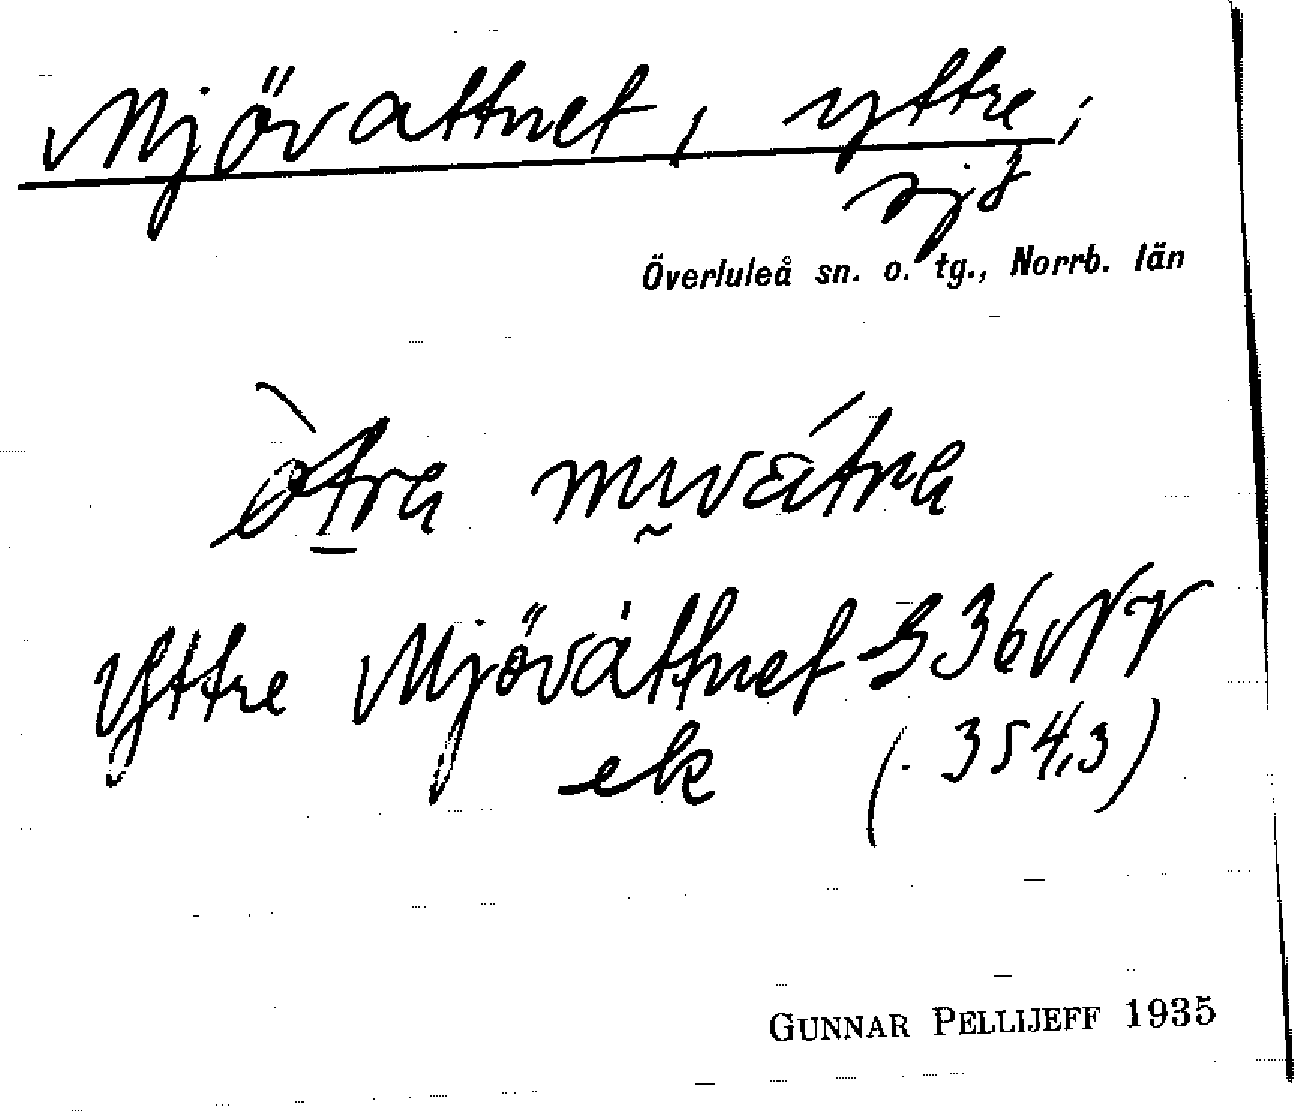 Mjövattnet, yttre,
sjö
Överluleå sn. o. tg., Norrb. län
Yttre Mjövattnet 336 NV
ek (. 354,3)
GUNNAR PELLIJEFF 1935